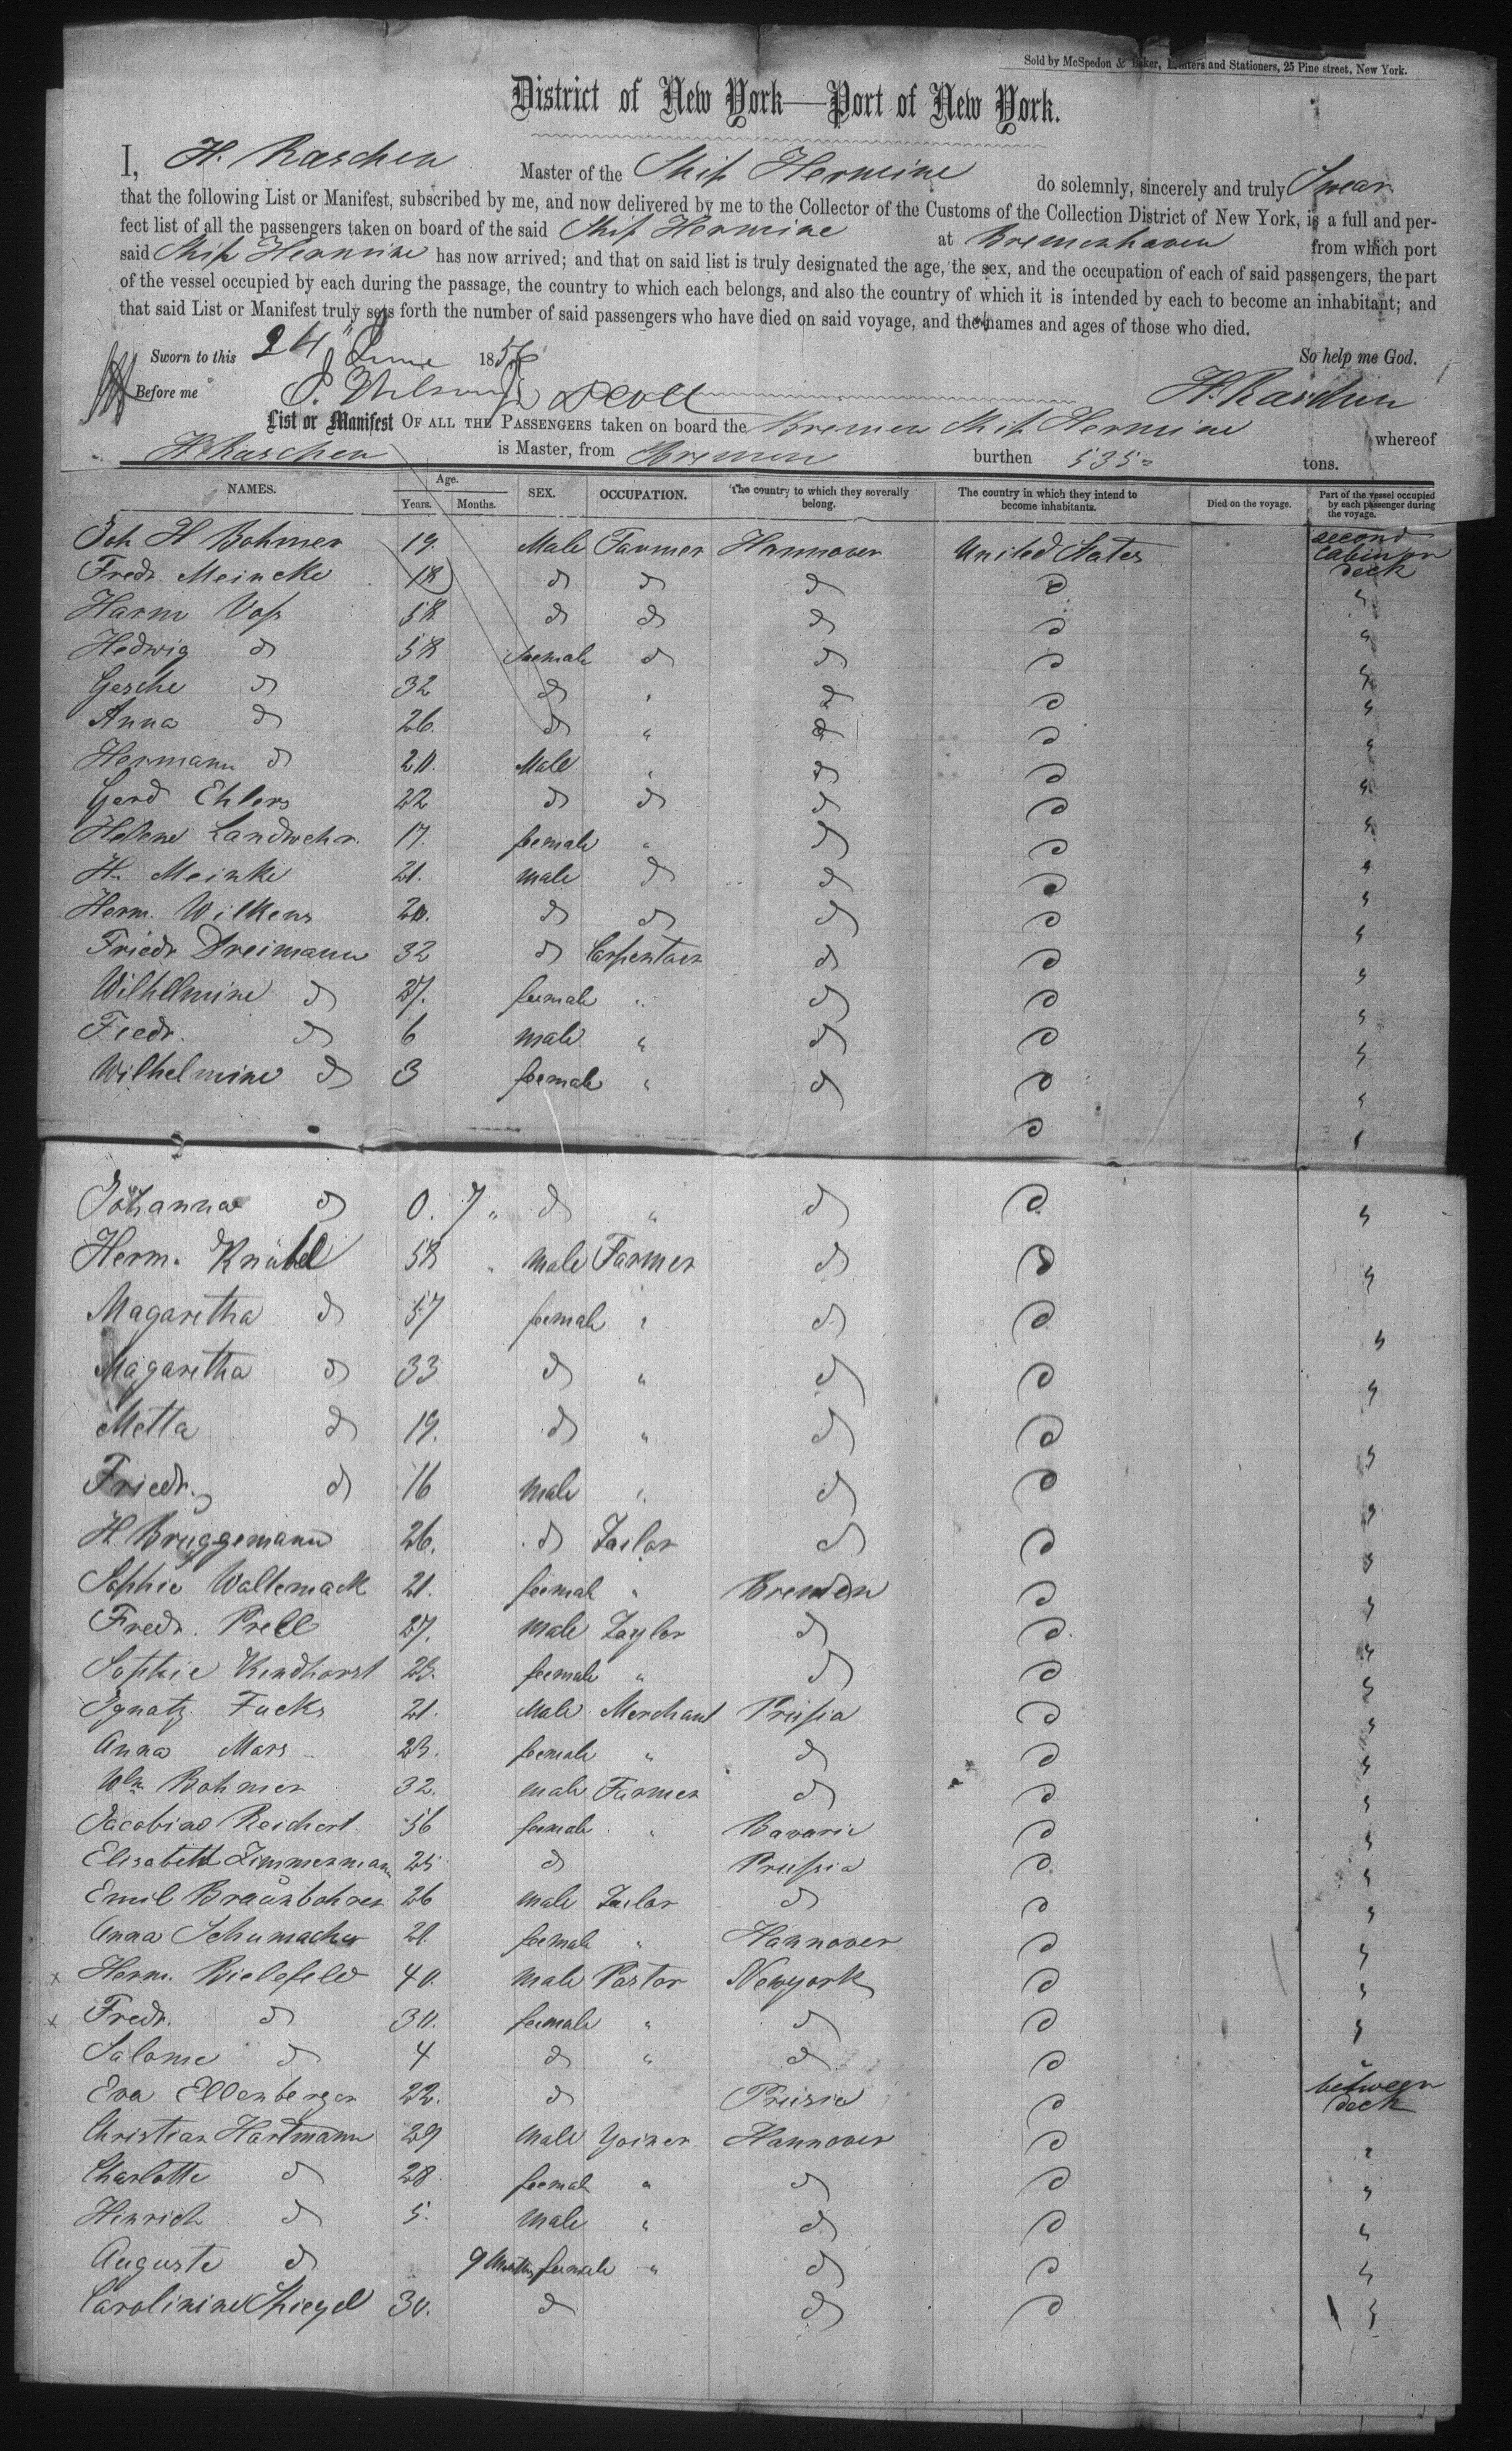 Sold by McSpedon & Baker, Printers and Stationers, 25 Pine street, New York.
District of New York—Port of New York.
I, H. Raschen Master of the Ship Hermine do solemnly, sincerely and truly Swear
that the following List or Manifest, subscribed by me, and now delivered by me to the Collector of the Customs of the Collection District of New York, is a full and per-
fect list of all the passengers taken on board of the said Ship Hermine at Bremerhaven from which port
said Ship Hermine has now arrived; and that on said list is truly designated the age, the sex, and the occupation of each of said passengers, the part
of the vessel occupied by each during the passage, the country to which each belongs, and also the country of which it is intended by each to become an inhabitant; and
that said List or Manifest truly sets forth the number of said passengers who have died on said voyage, and the names and ages of those who died.
Sworn to this 24" June 1856 So help me God.
Before me H. Raschen
List or Manifest OF ALL THE PASSENGERS taken on board the Bremen Ship Hermine whereof
H Raschen is Master, from Bremen burthen 535 tons.
NAMES. Age. Years. Months. SEX. OCCUPATION. The country to which they severally belong. The country in which they intend to become inhabitants. Died on the voyage. Part of the vessel occupied by each passenger during the voyage.
Joh H Bohmer 19. Male Farmer Hannover United States second cabin on deck
Fredr. Meincke 18 d d d d "
Harm Voß 58 d d d d "
Hedwig d 58 feemale d d d "
Gesche d 32 d " d d "
Anna d 26. d " d d "
Hermann d 20. Male " d d "
Gerd Ehlers 22 d d d d "
Helene Landwehr. 17. feemale " d d "
H. Meinke 21. male d d d "
Herm. Wilkens 20. d d d d "
Friedr Dreimann 32 d Carpentaer d d "
Wilhelmine d 27. feemale " d d "
Fiedr. d 6 male " d d "
Wilhelmine d 3 feemale " d d "
d "
Johanna d 0. 7 " d " d d "
Herm. Knübel 58 " male Farmer d d "
Magaretha d 57 feemale " d d "
Magaretha d 33 d " d d "
Metta d 19. d " d d "
Friedr. d 16 male " d d "
H. Bruggemann 26. d Tailor d d "
Sophie Waltemack 21. feemale " Bremen d "
Fredr. Prell 27. male Taylor d d "
Sophie Kendhorst 23. feemale " d d "
Ignatz Fucks 21. Male Merchant Prussia d "
Anna Mars 23. feemale " d d "
Wlm Bohmer 32. male Farmer d d "
Jacobine Reichert 56 feemale " Bavaria d "
Elisabeth Zimmermann 25 d Prussia d "
Emil Braunbohrer 26 male Tailor d d "
Anna Schumacher 21. feemale " Hannover d "
x Herm. Bielefeld 40. male Pastor Newyork d "
x Fredr. d 30. feemale " d d "
Salome d 4 d " d d "
Eva Ellenberger 22. d Preisia d between deck
Christian Hartmann 29 male Yoiner Hannover d "
Charlotte d 28 feemale " d d "
Hinrich d 5. male " d d "
Auguste d 9 Months feemale " d d "
Carolinine Spiegel 30. d d d "